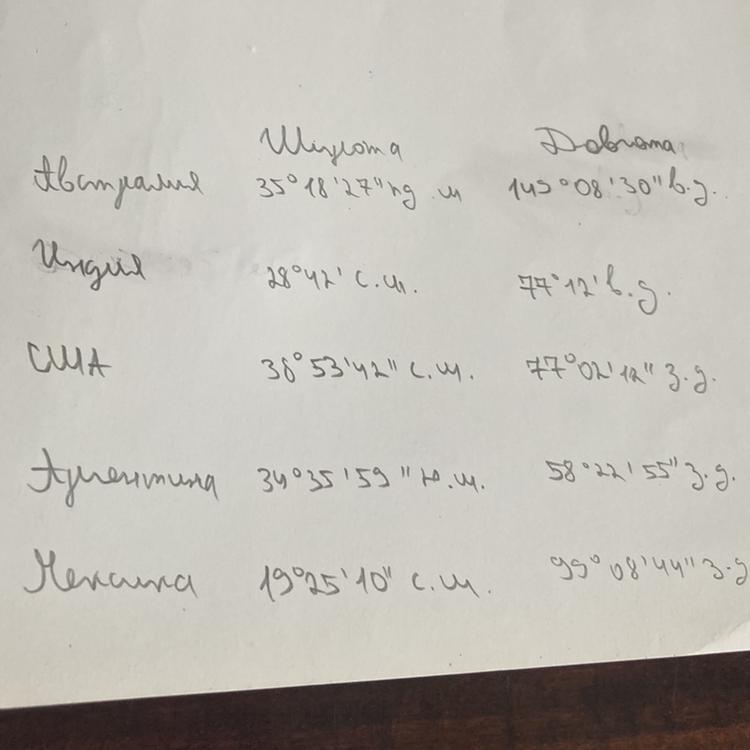 Широта Долгота
Австралия 35°18'27" ю.ш 149°08'30" в.д.
Индия 28°42' с.ш. 77°12' в.д.
США 38°53'42" с.ш. 77°02'12" з.д.
Аргентина 34°35'59" ю.ш. 58°22'55" з.д.
Мексика 19°25'10" с.ш. 99°08'44" з.д